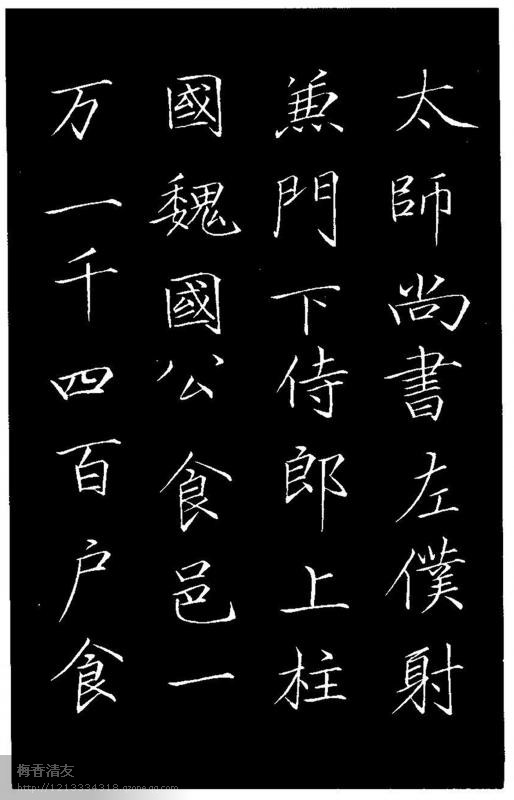 太師尚書左僕射
兼門下侍郎上柱
國魏國公食邑一
万一千四百户食
梅香清友
http://1213334318.qzone.qq.com